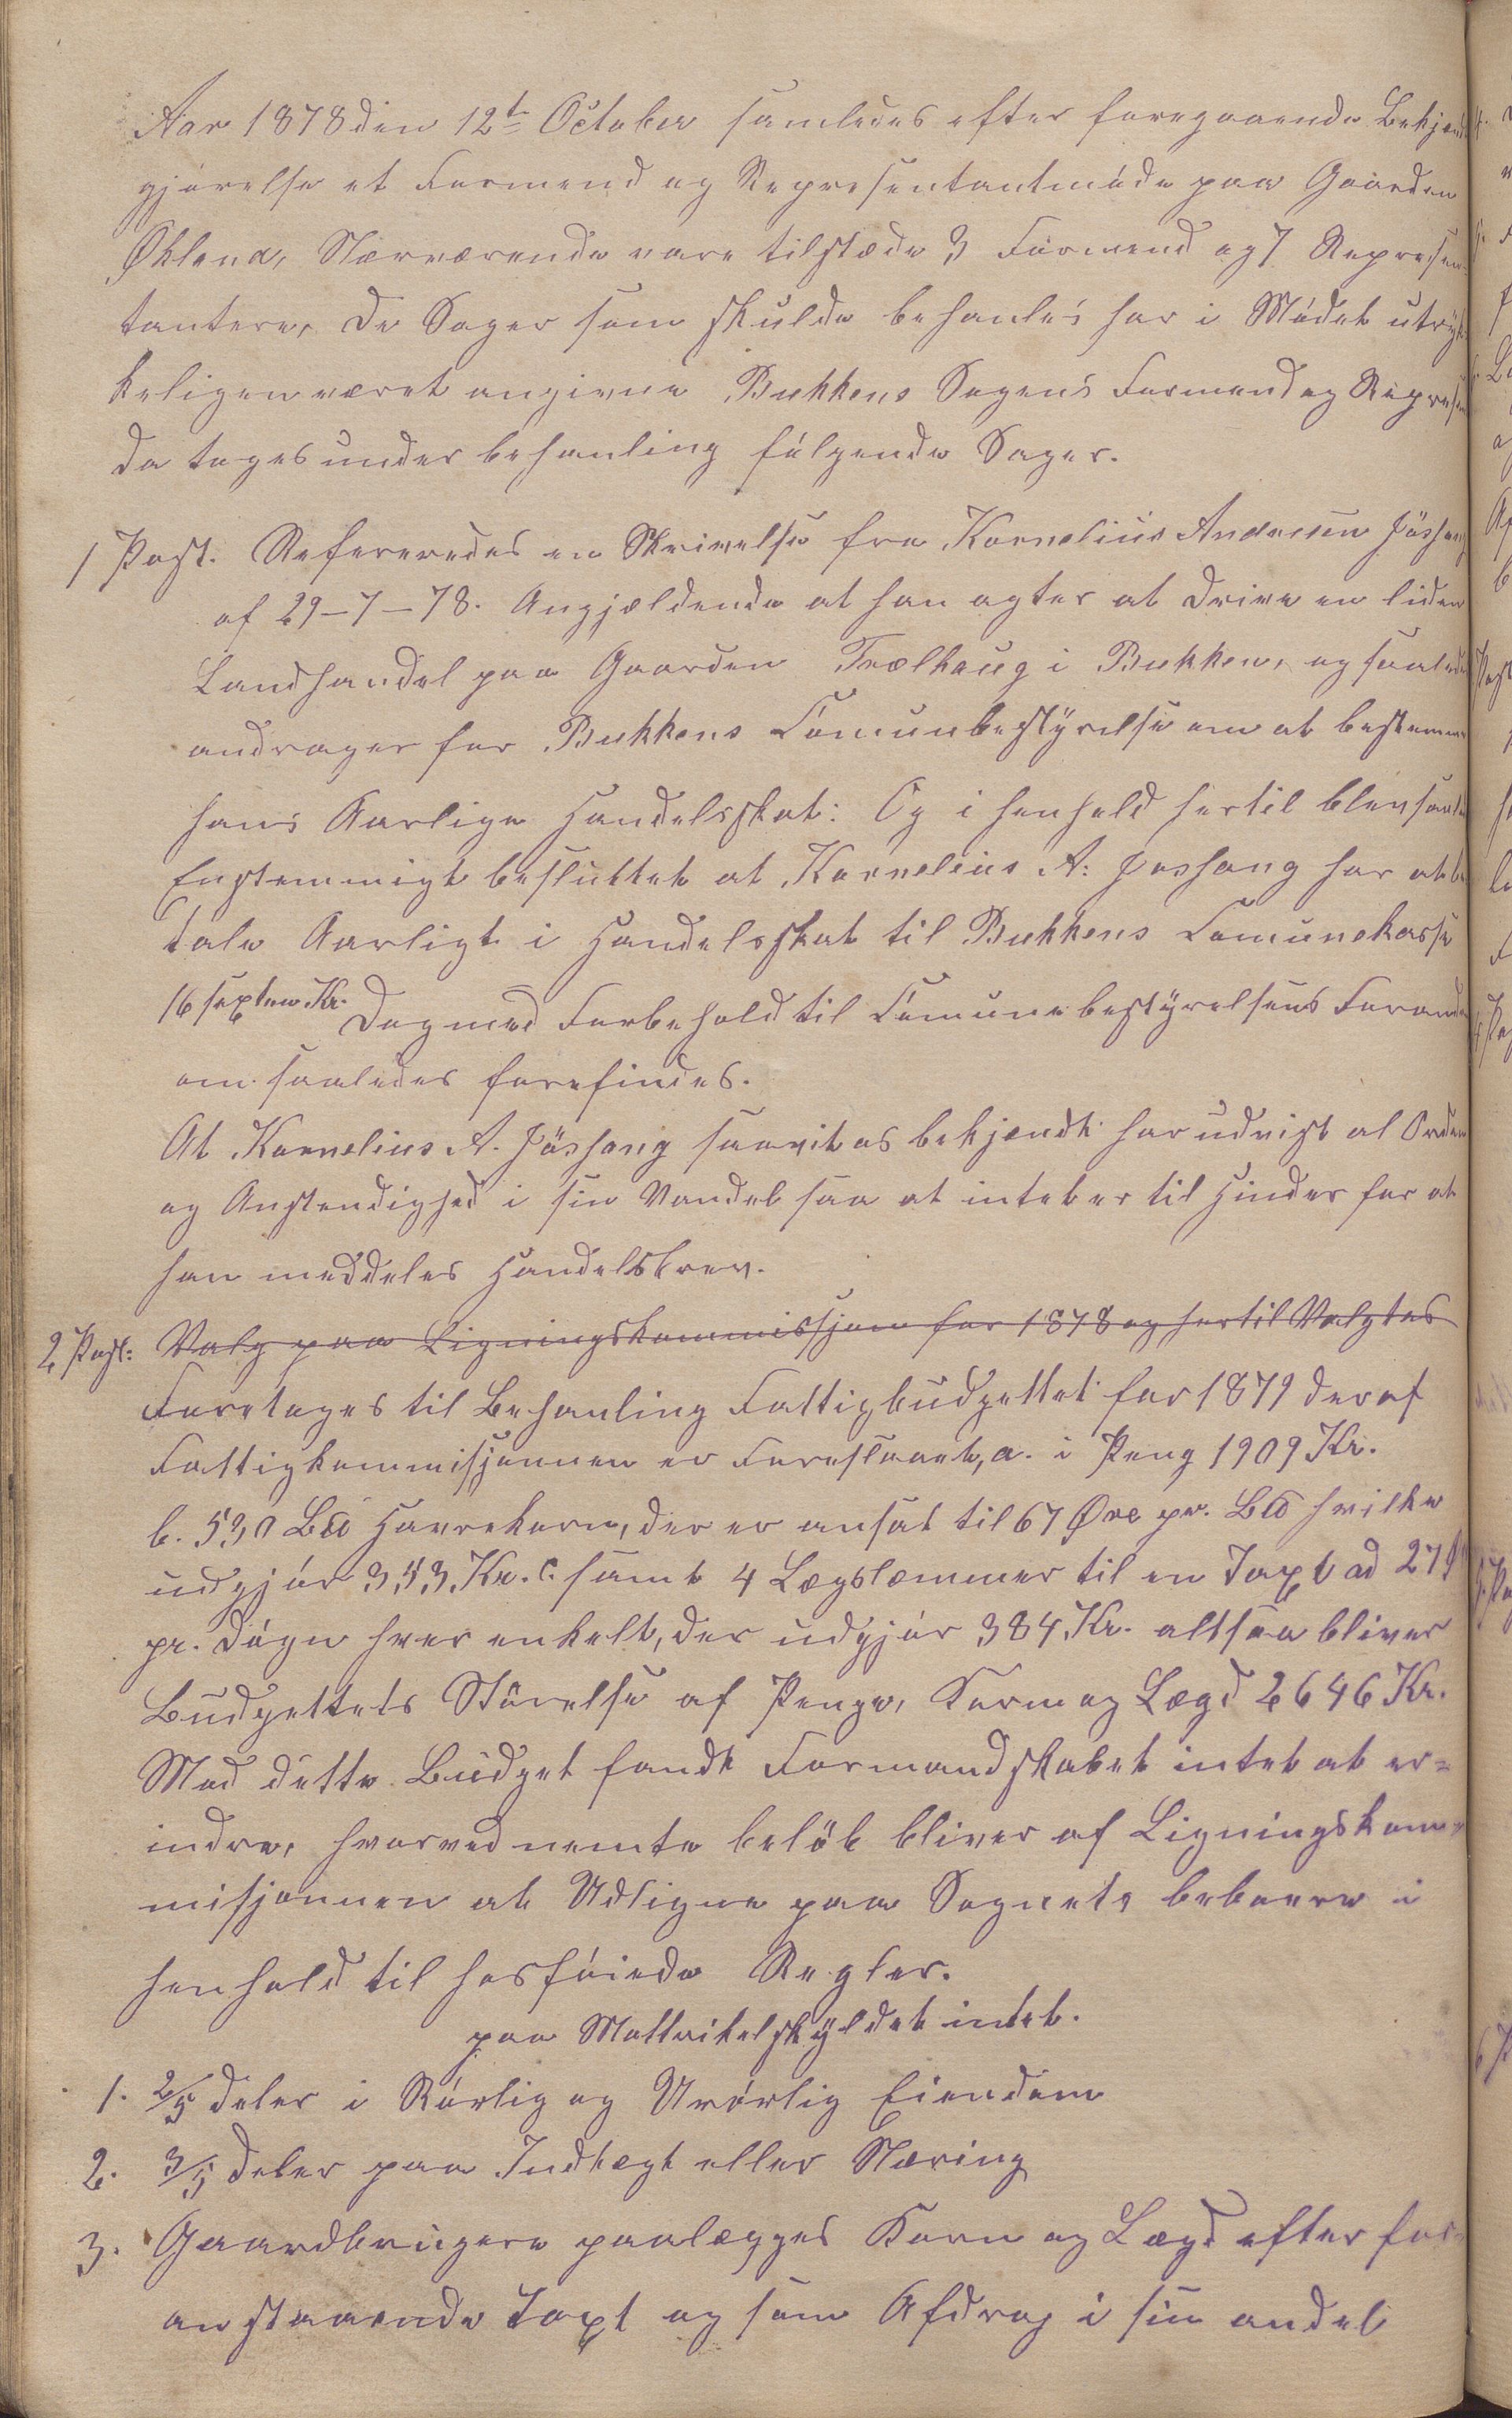 Aar 1878 den 12te October samledes efter foregaaende Bekjend
gjørelse et Formend og Representantmøde paa Gaarden
Økland, Nærværende vare tilstæde 3 Formend og 7 Represen
tantere, De Sager som skulde behanles har i Mødet utryk
keligen været angivne Bukkens Sogens Formend og Represen
da toges under behanling følgende Sager.
1 Post. Refereredes en Skrivelse fra Kornelius Andersen Jøshang
af 29-7-78. Angjældende at han agter at drive en liden
Landhandel paa Gaarden Trælhaug i Bukken, og saaledes
andrager for Bukkens Comunbestyrelse om at bestemme
hans Aarlige Handelsskat: Og i henhold hertil blev saaledes
Enstemmigt besluttet at Kornelius A: Joshang har at be
tale Aarligt i Handelsskat til Bukkens Comunekasse
16 sexten Kr. Dog med Forbehold til Comunebestyrelsens Forand
om saaledes forefindes.
At Kornelius A. Jøshang saavit os bekjendt har udvist al Orden
og Anstendighed i sin Vandel saa at intet er til Hinder for at
han meddeles Handelsbrev.
2 Post: Valg paa Ligningskommissjom for 1878 og hertil Valgtes
Foretoges til Behanling Fattigbudgettet for 1879 deraf
Fattigkommisjonnen er Foreslaaet, a. i Peng 1909 Kr.
b. 530 Bd Havrekorn, der er ansat til 67 Øre pr. Bd hvilke
udgjør 353 Kr. c. samt 4 Lægslemmer til en Taxt ad 27
pr. Døgn hver enkelt, der udgjør 384 Kr. altsaa bliver
Budgettets Størelse af Penge, Korn og Lægd 2646 Kr.
Mod dette Budget fandt Formandskabet intet at er=
indre, hvorved nemte beløb bliver af Ligningskom=
misjonnen at Udligne paa Sognets beboere i
henhold til hosføiede Regler.
paa Mattrikelskyldet intet.
1. 2/5 deler i Rørlig og Urørlig Eiendom
2. 3/5 deler paa Indtægt eller Næring
3. Gaardbrugere paalægges Korn og Lægd efter for=
anstaaende Taxt og som Afdrag i sin andel